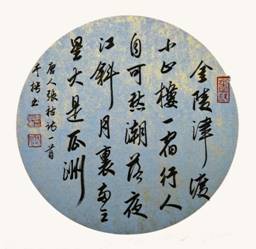 金陵津渡
小山樓一宿行人
自可愁潮落夜
江斜月裏兩三
星火是瓜洲
唐人張祜詩一首